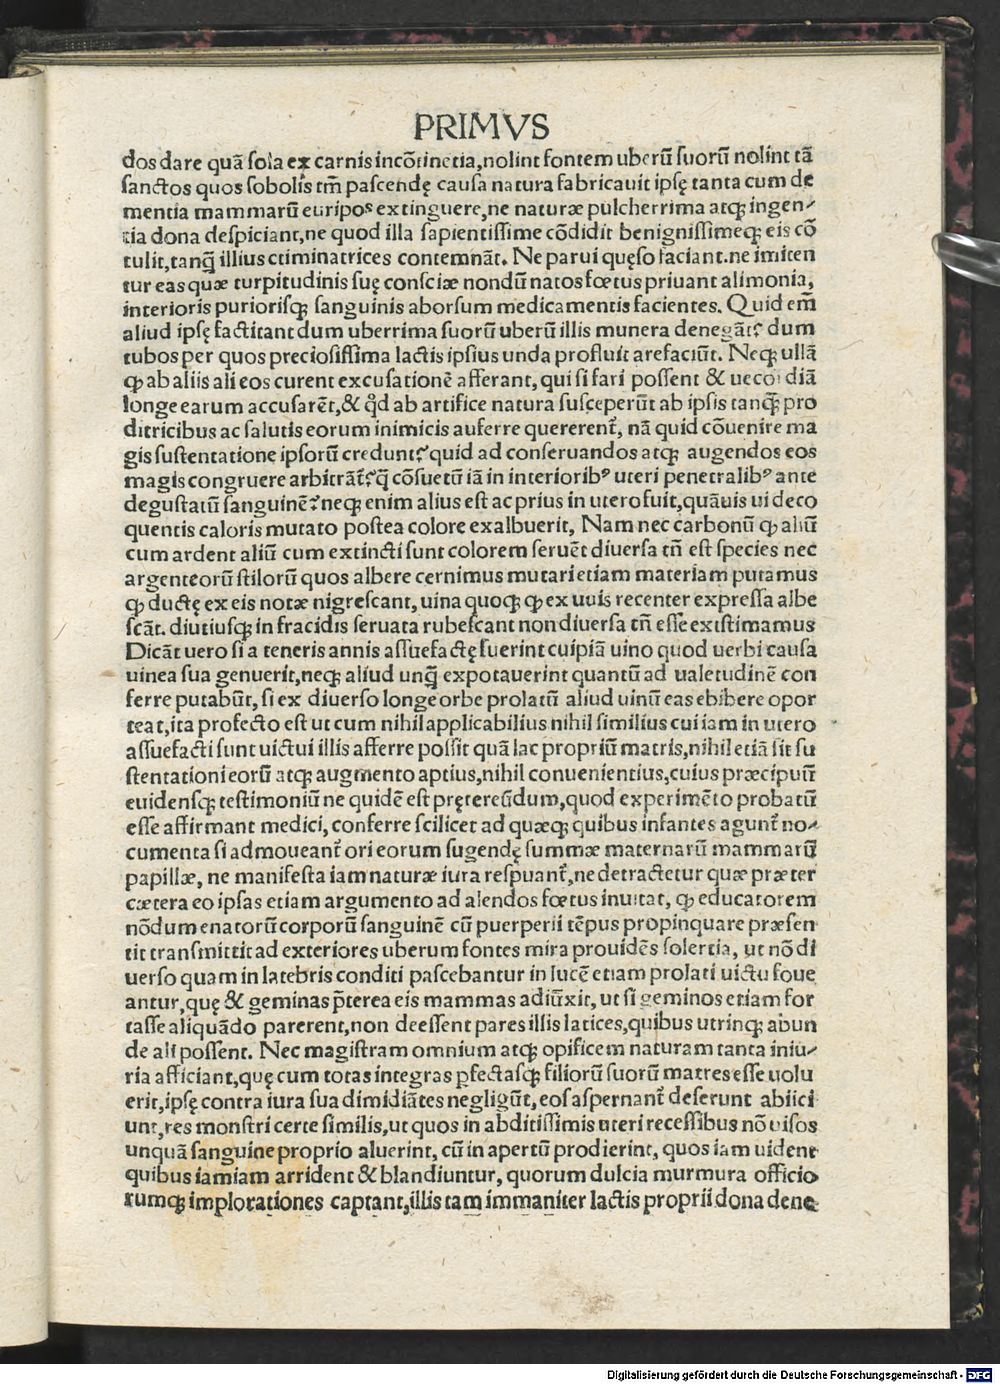 PRIMVS
dos dare quā sola ex carnis incōtinētia, nolint fontem uberū suorū nolint tā
sanctos quos sobolis tm̄ pascendę causa natura fabricauit ipsę tanta cum de
mentia mammarū euriposꝰ extinguere, ne naturæ pulcherrima atqꝫ ingen⸗
tia dona despiciant, ne quod illa sapientissime cōdidit benignissimeqꝫ eis cō
tulit, tanq̄ illius criminatrices contemnāt. Ne parui quęso faciant. ne imiten
tur eas quæ turpitudinis suę consciæ nondū natos fœtus priuant alimonia,
interioris puriorisqꝫ sanguinis aborsum medicamentis facientes. Quid em̄
aliud ipsę factitant dum uberrima suorū uberū illis munera denegāt? dum
tubos per quos preciosissima lactis ipsius unda profluit arefaciūt. Neqꝫ ullā
ꝙ ab aliis ali eos curent excusationē afferant, qui si fari possent & uecordiā
longe earum accusarēt, & qd̄ ab artifice natura susceperūt ab ipsis tanqꝫ pro
ditricibus ac salutis eorum inimicis auferre quererent᷑, nā quid cōuenire ma
gis sustentatione ipsorū credunt? quid ad conseruandos atqꝫ augendos eos
magis congruere arbitrāt᷑? q̄ cōsuetū iā in interioribꝰ uteri penetralibꝰ ante
degustatū sanguinē? neqꝫ enim alius est ac prius in utero fuit, quāuis ui deco
quentis caloris mutato postea colore exalbuerit, Nam nec carbonū ꝙ aliū
cum ardent aliū cum extincti sunt colorem seruēt diuersa tn̄ est species nec
argenteorū stilorū quos albere cernimus mutari etiam materiam putamus
ꝙ ductę ex eis notæ nigrescant, uina quoqꝫ ꝙ ex uuis recenter expressa albe
scāt. diutiusqꝫ in fracidis seruata rubescant non diuersa tn̄ esse existimamus
Dicāt uero si a teneris annis assuefactę fuerint cuipiā uino quod uerbi causa
uinea sua genuerit, neqꝫ aliud unq̄ expotauerint quantū ad ualetudinē con
ferre putabūt, si ex diuerso longe orbe prolatū aliud uinū eas ebibere opor
teat, ita profecto est ut cum nihil applicabilius nihil similius cui iam in utero
assuefacti sunt uictui illis afferre possit quā lac propriū matris, nihil etiā sit su
stentationi eorū atqꝫ augmento aptius, nihil conuenientius, cuius præcipuū
euidensqꝫ testimoniū ne quidē est prętereūdum, quod experimēto probatū
esse affirmant medici, conferre scilicet ad quæqꝫ quibus infantes agunt᷑ no⸗
cumenta si admoueant᷑ ori eorum sugendę summæ maternarū mammarū
papillæ, ne manifesta iam naturæ iura respuant᷑, ne detractetur quæ præter
cætera eo ipsas etiam argumento ad alendos fœtus inuitat, ꝙ educatorem
nōdum enatorū corporū sanguinē cū puerperii tēpus propinquare præsen
tit transmittit ad exteriores uberum fontes mira prouidēs solertia, ut nō di
uerso quam in latebris conditi pascebantur in lucē etiam prolati uictu foue
antur, quę & geminas p̄terea eis mammas adiūxit, ut si geminos etiam for
tasse aliquādo parerent, non deessent pares illis latices, quibus utrinqꝫ abun
de ali possent. Nec magistram omnium atqꝫ opificem naturam tanta iniu⸗
ria afficiant, quę cum totas integras ꝑfectasqꝫ filiorū suorū matres esse uolu
erit, ipsę contra iura sua dimidiātes negligūt, eos aspernant᷑ deserunt abiici
unt, res monstri certe similis, ut quos in abditissimis uteri recessibus nō uisos
unquā sanguine proprio aluerint, cū in apertū prodierint, quos iam uident
quibus iamiam arrident & blandiuntur, quorum dulcia murmura officio
rumqꝫ implorationes captant, illis tam immaniter lactis proprii dona dene
Digitalisierung gefördert durch die Deutsche Forschungsgemeinschaft - DFG